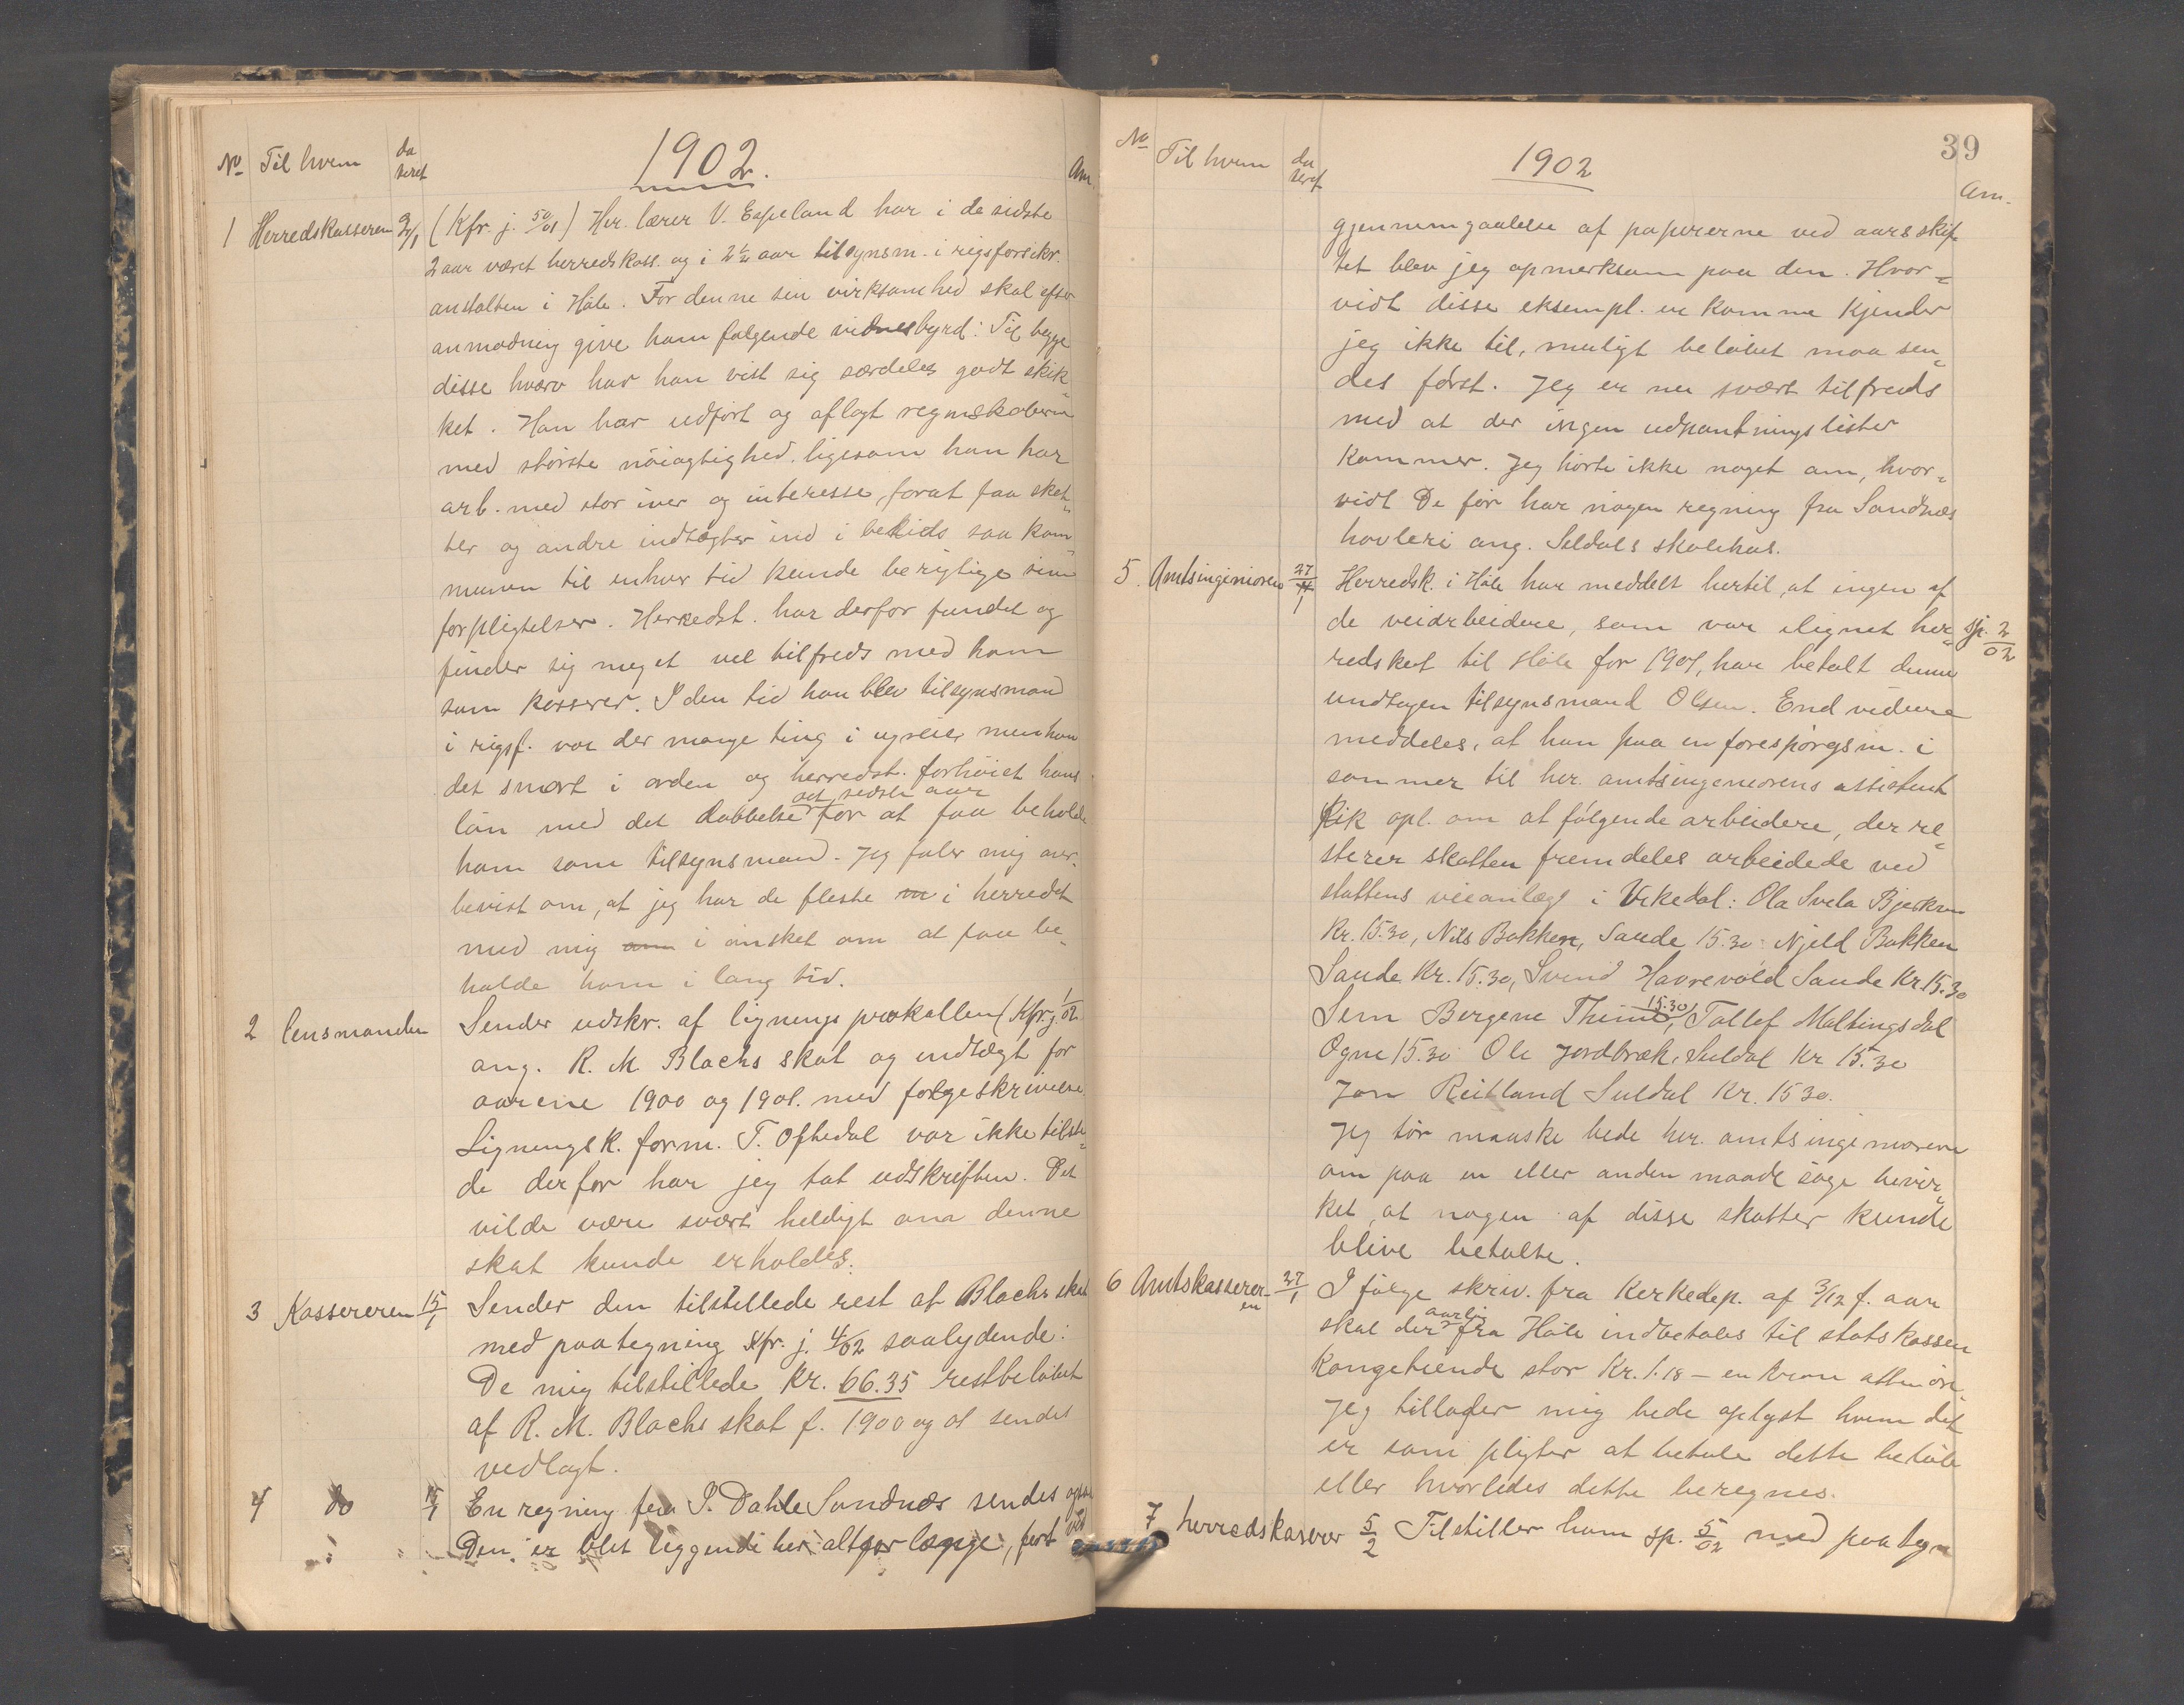 No Til hvem da teret 1902. Am.
1 Herredskasseren 2/1 (Kfr. j. 50/01) Hr. lærer V. Espeland har i de sidste
2 aar været herredskass. og i 2½ aar tilsynsm. i rigsforsikr.
anstalten i Høle. For denne sin virksomhed skal efter
anmodning give ham følgende vidnesbyrd: Til begge
disse hværv har han vist sig særdeles godt skik-
ket. Han har udført og aflagt regnskaberne
med største nöiagtighed, ligesom han har
arb. med stor iver og interesse, forat faa skat-
ter og andre indtægter ind i betids saa kom-
munen til enhver tid kunde berigtige sine
forpligtelser. Herredst. har derfor fundet og
finder sig meget vel tilfreds med ham
som kasserer. I den tid han blev tilsynsmand
i rigsf. var der mange ting i ugreie, men han
det snart i orden og herredst. forhöiet hans
lön med det dobbelte det sidste aar for at faa beholde
ham som tilsynsmand. Jeg føler mig over-
bevist om, at jeg har de fleste i herredet
med mig i ønsket om at faa be-
holde ham i lang tid.
2 lensmanden Sender udskr. af ligningsprokollen (Kfr. j. 1/02
ang. R. M. Blachs skat og indtægt for
aarene 1900 og 1901. med følgeskrivelse.
Ligningsk. form. T. Oftedal var ikke tilste-
de derfor har jeg tat udskriften. Det
vilde være svært heldigt om denne
skat kunde erholdes.
3 Kassereren 15/1 Sender den tilstillede rest af Blachs skat
med paategning kfr. j. 4/02 saalydende:
De mig tilstillede Kr. 66.35 restbeløbet
af R. M. Blachs skat f. 1900 og 01 sendes
vedlagt.
4 do 15/1 En regning fra P. Dahle Sandnæs sendes ogsaa
Den er blet liggende her altfor længe, først ved
39
No Til hvem da teret 1902 Am.
gjennemgaaelse af papirerne ved aarsskif-
tet blev jeg opmerksom paa den. Hvor-
vidt disse eksempl. er komne kjender
jeg ikke til, muligt beløbet maa sen-
des først. Jeg er nu svært tilfreds
med at der ingen udpantningslister
kommer. Jeg hørte ikke noget om, hvor-
vidt De før har nogen regning fra Sandnæs
høvleri ang. Seldals skolehus.
5 Amtsingeniøren 27/1 Herredsk. i Høle har meddelt hertil, at ingen af
de veiarbeidere, som var ilignet her- sp. 2/02
redskat til Høle for 1901, har betalt denne
undtagen tilsynsmand Olsen. End videre
meddeles, at han paa en forespørgsm. i
sommer til hr. amtsingeniørens assistent
fik opl. om at følgende arbeidere, der re-
sterer skatten fremdeles arbeidede ved
stattens veianlæg i Vikedal: Ola Svela Bjerkrem
Kr. 15.30, Nils Bakken, Sande 15.30 Njeld Bakken
Sande Kr. 15.30, Svend Havrevold Sande Kr. 15.30
Sem Bergene Thime 15.30, Tollef Maltingsdal
Ogne 15.30 Ole Jordbræk, Suldal Kr 15.30
Jon Reitland Suldal Kr. 15 30.
Jeg tør maaske bede hr. amtsingeniøren
om paa en eller anden maade søge bevir-
ket, at nogen af disse skatter kunde
blive betalte.
6 Amtskassereren 27/1 I følge skriv. fra Kirkedep. af 3/12 f. aar
skal der aarlig fra Høle indbetales til statskassen
Kongetiende stor Kr. 1.18 – en krone atten øre.
Jeg tillader mig bede oplyst hvem det
er som pligter at betale dette beløb
eller hvorledes dette beregnes.
7 herredskaserer 5/2 Tilstiller ham sp. 5/02 med paategn